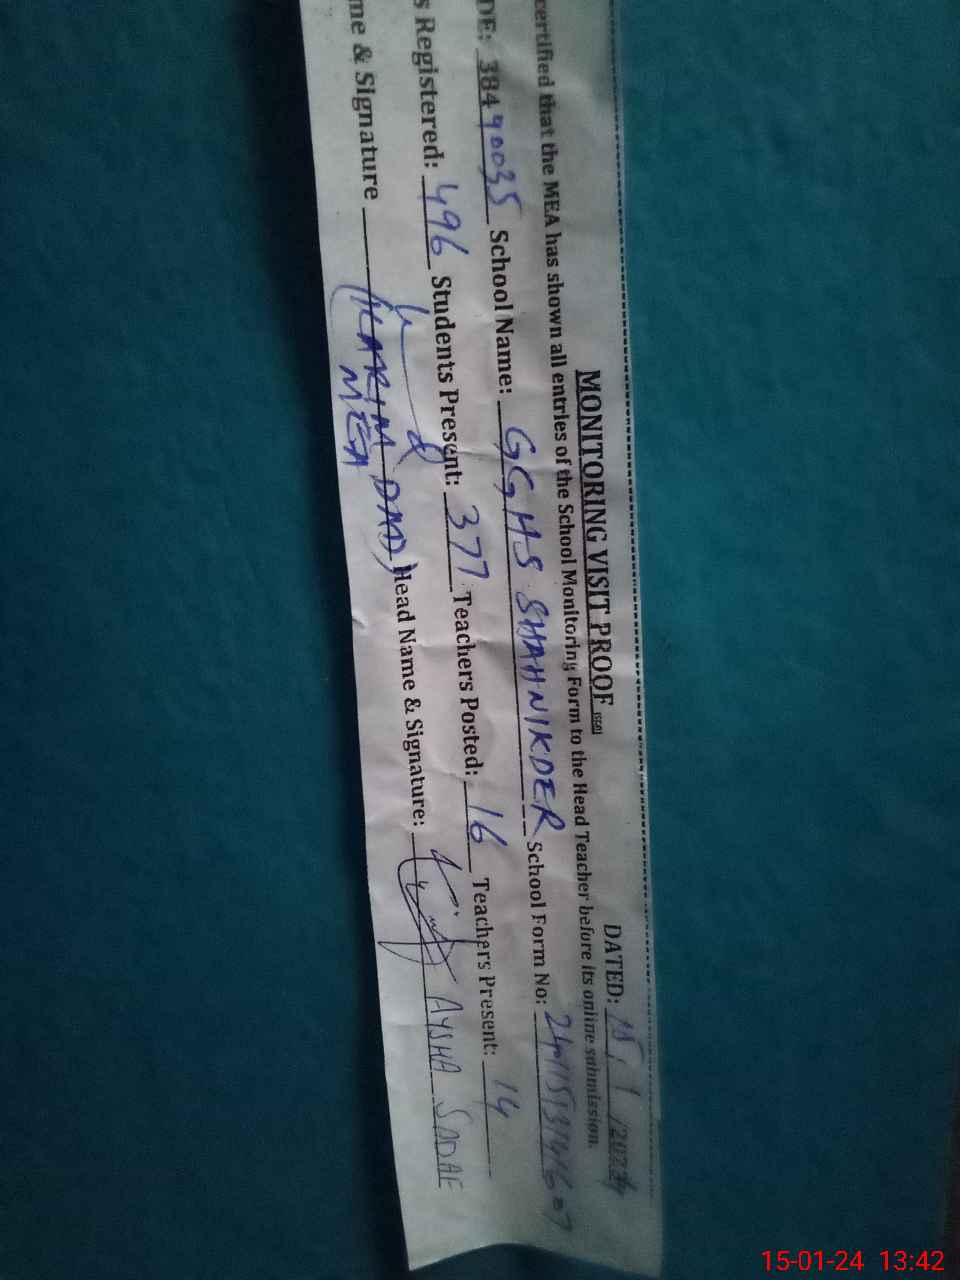 MONITORING VISIT PROOF DATED: 15/1/2024
certified that the MEA has shown all entries of the School Monitoring Form to the Head Teacher before its online submission.
DE: 38440035 School Name: GGHS SHAHNIKDER School Form No:
s Registered: 496 Students Present: 377 Teachers Posted: 16 Teachers Present: 14
me & Signature (KARIM DAD) Head Name & Signature: AYSHA SADAF
MEA
15-01-24 13:42